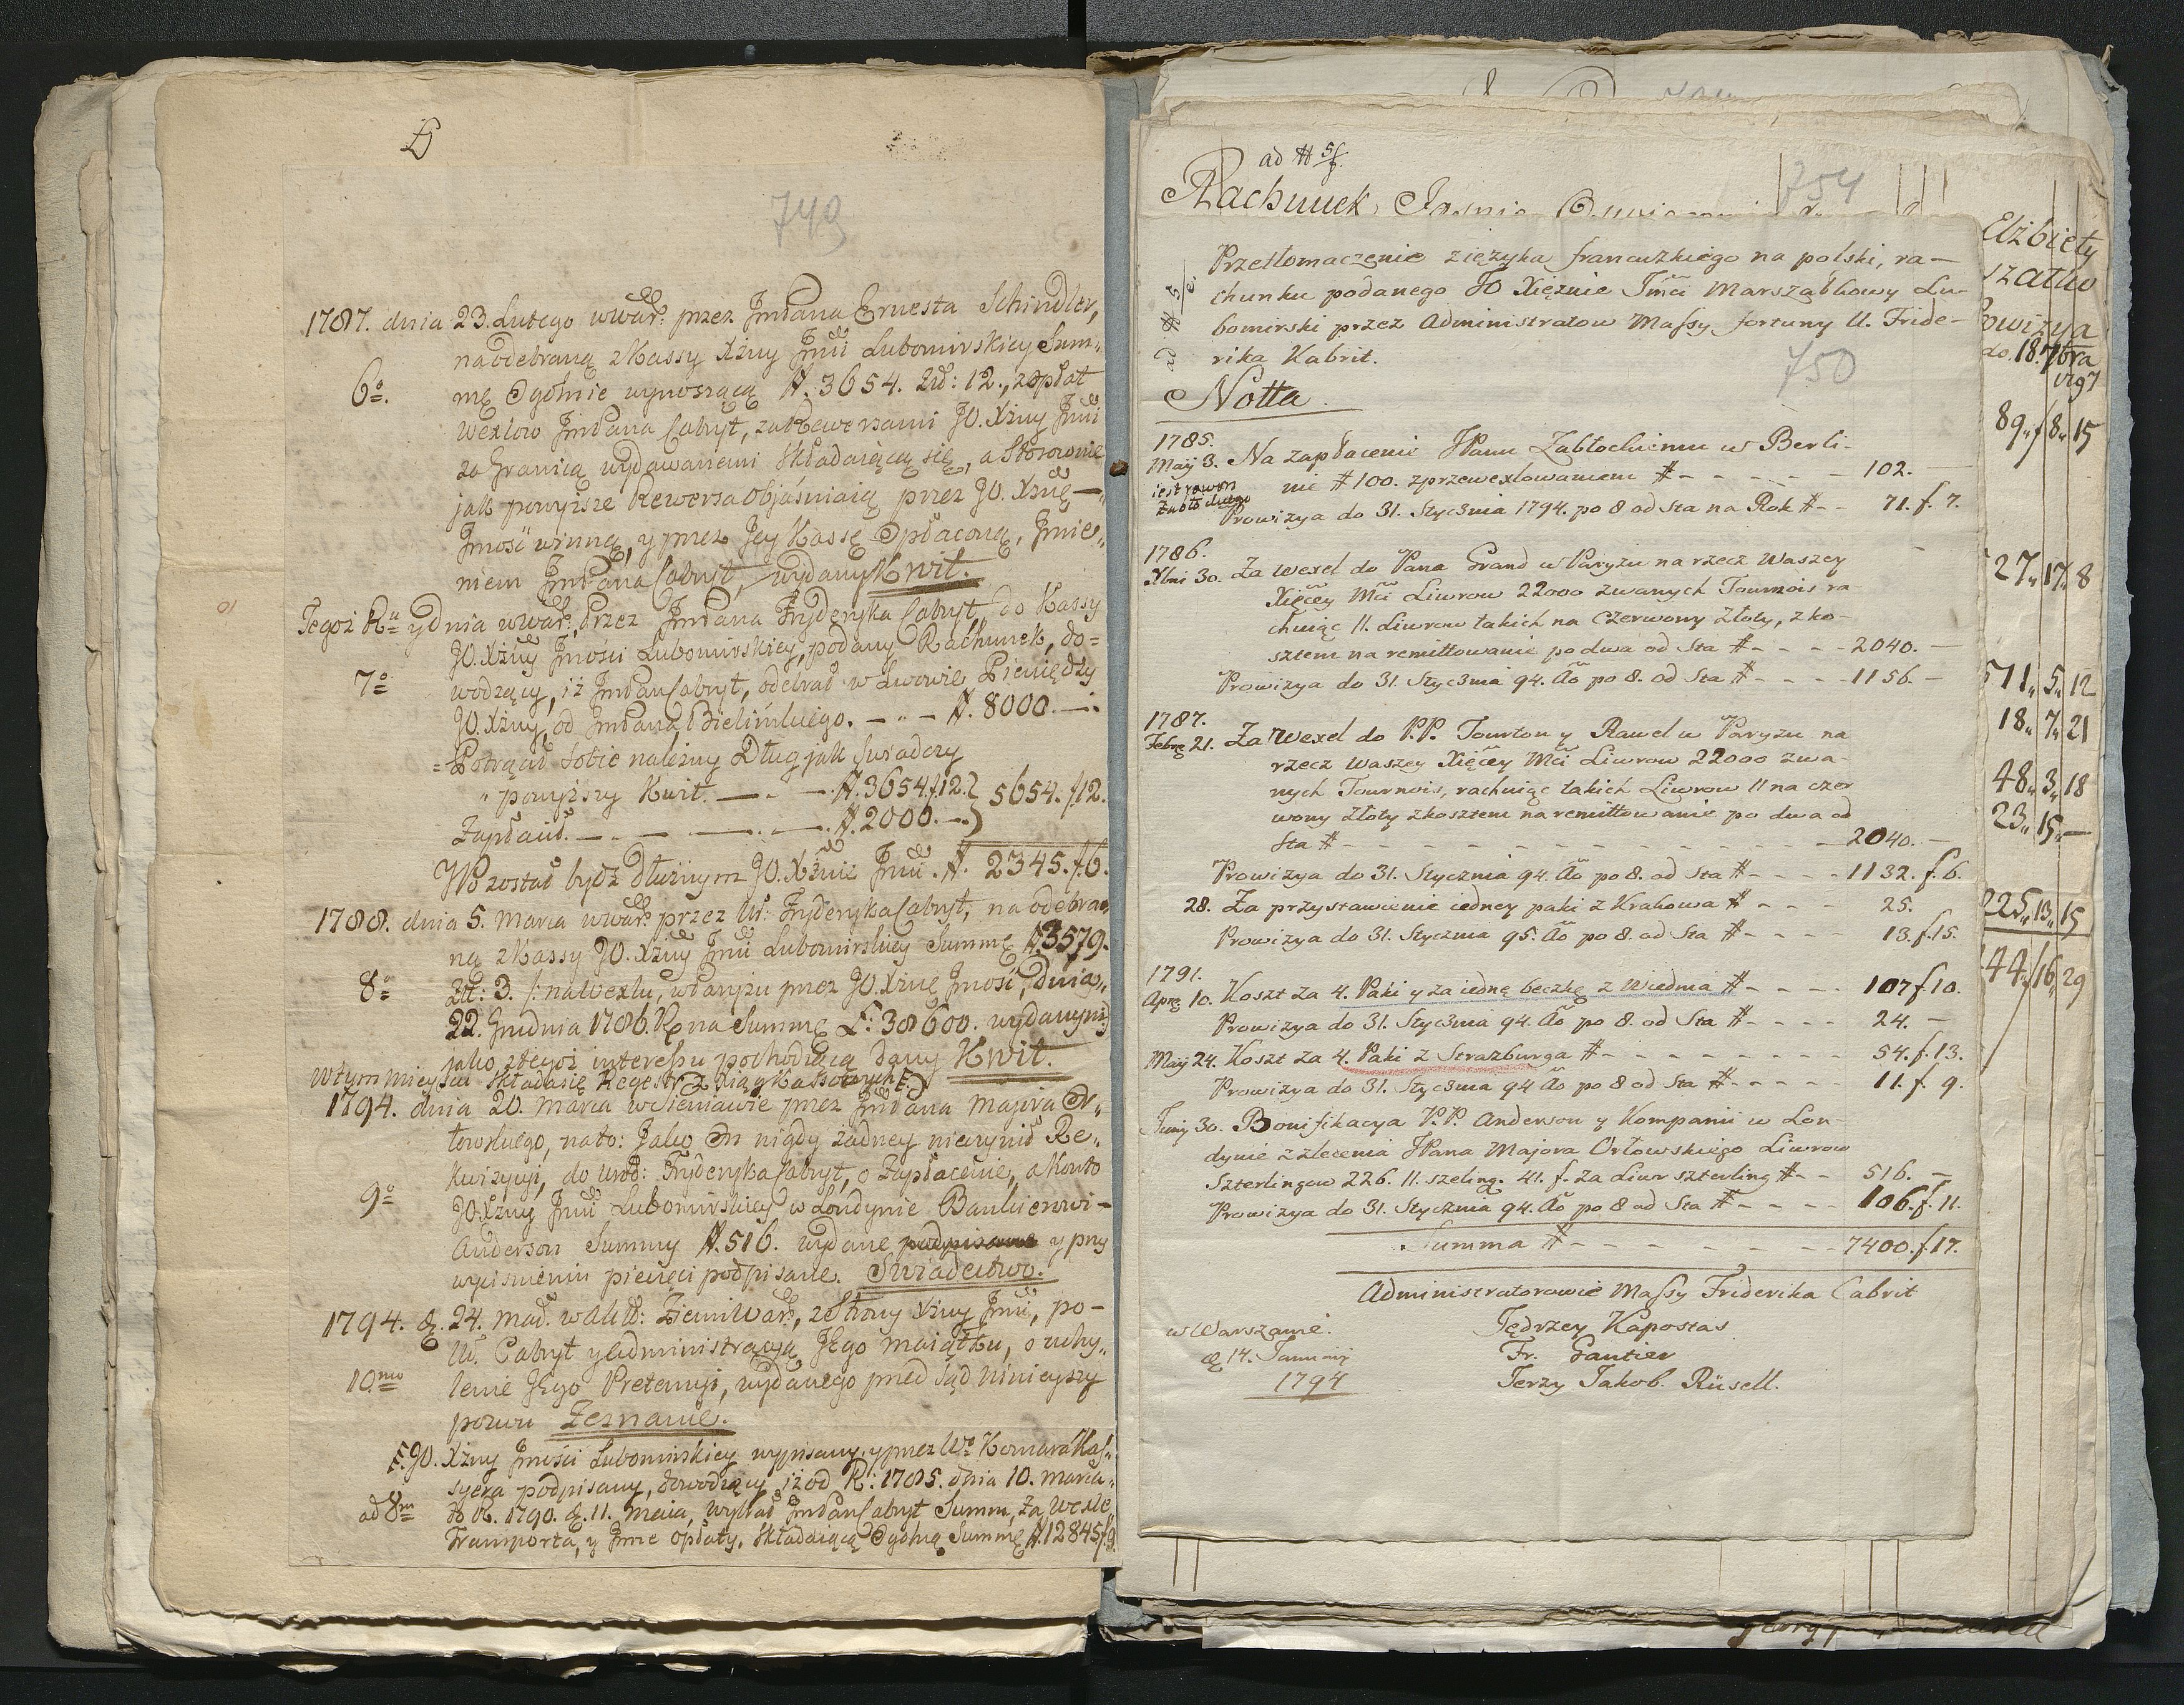 749
1787. dnia 23. Lutego w War: przez JmPana Ernesta Schindler,
na odebraną z Kassy Xżny Jmci Lubomirskiey Sum„
6o. mę Ogólnie wynoszącą #. 3654. Zł: 12., z opłat
Wexlow JmPana Cabryt, za Rewersami JO. Xżny Jmci
za Granicą wydawanemi składaiącą się, a stosownie
jak powyższe Rewersa objaśniaią przez JO. Xżnę
Jmość winną, y przez Jey Kassę Opłaconą, Jmie„
niem JmPana Cabryt, wydany Kwit.
Tegoż Ru y Dnia w War: Przez JmPana Fryderyka Cabryt, do Kassy
JO. Xżny Jmości Lubomirskiey, podany Rachunek, do=
7o wodzący, iż JmPan Cabryt, odebrał w Lwowie Pieniędzy
JO. Xżny, od JmPana Bielińskiego. — „ — #. 8000. —.
= Potrącił sobie należny Dług jak świadczy
" powyższy Kwit. — . — . #. 3654. f 12. } 5654. f 12.
Zapłacił. — — — . — . #. 2000. —. }
Pozostał bydź dłużnym JO. Xżnie Jmci. #. 2345. f. 6.
1788. dnia 5. Marca w War: przez Ur: Fryderyka Cabryt, na odebra„
ną z Kassy JO. Xżny Jmci Lubomirskiey Summę #. 3579.
8o Zł: 3. /: na Wexlu, w Paryżu przez JO. Xżnę Jmość, Dnia„
22. Grudnia 1786. R. na Summę L: 38600. wydanym
jako z tegoż interessu pochodzącą dany Kwit.
W tym mieyscu składa się Regestr z Xiążki Kassowych F.)
1794. dnia 20. Marca w Sieniawie przez JmPana Majora Or„
łowskiego, na to: Jako On nigdy żadney nieczynił Re„
kwizycyi, do Urod: Fryderyka Cabryt, o Zapłacenie, a Konto
9o JO. Xżny Jmci Lubomirskiey w Londynie Bankierowi -
Anderson Summy #. 516. wydane y przy
wyciśnieniu pieczęci podpisane. Swiadectwo.
1794. d. 24. Maä. w Akt: Ziemi War:, z Strony Xżny Jmci, po-
W. Cabryt y Administracyą Jego maiątku, o uchy„
10mo lenie Jego Pretensyi, wydanego przed Sąd Ninieyszy
pozwu Zeznanie.
F. JO. Xżny Jmości Lubomirskiey wypisany, y przez Wo Komara Kas„
syera podpisany, dowodzący iż od R: 1785. dnia 10. Marca„
ad 8m do R. 1790. d. 11. Maia, wybrał JmPan Cabryt Summ, za Wexle
Transporta, y Jnne opłaty, składaiącą Ogólną Summę #. 12845 f 9.
ad # 5/f.
754
Rachunek Jasnie
ad # 5/c.
Przetłomaczenie z ięzyka francuzkiego na polski, ra-
chunku podanego JO Xiężnie Jmci Marszałkowy Lu-
bomirski przez Administratow Massy fortuny U. Fride-
rika Kabrit.
750
Notta.
1785.
Maij 3. Na zapłacenie JPanu Zabłockiemu w Berli-
nie # 100. z przewexlowaniem # - - - - - 102. —
Prowizya do 31. Stycznia 1794. po 8 od sta na Rok # - - 71. f. 7.
1786.
Xbris 30. Za Wexel do Pana Grand w Paryżu na rzecz Waszey
Xięcey Mci Liwrow 22000 zwanych Tournois ra
chuiąc 11. Liwrow takich na Czerwony Złoty, z ko-
sztem na remittowanie po dwa od Sta # - - - - 2040. —
Prowizya do 31. Stycznia 94. Ao po 8. od Sta # - - - - 1156. —
1787.
Febrę 21. Za Wexel do P.P. Tourton y Rawel w Paryżu na
rzecz Waszey Xięcey Mci Liwrow 22000 zwa-
nych Tournois, rachuiąc takich Liwrow 11 na czer
wony złoty z kosztem na remittowanie po dwa od
Sta # - - - - - - - - - - - - - 2040. —
Prowizya do 31. Stycznia 94. Ao po 8. od Sta # - - - - 1132. f. 6.
28. Za przystawienie iedney paki z Krakowa # - - - 25.
Prowizya do 31. Stycznia 95. Ao po 8. od Sta # - - - - 13. f. 15.
1791.
Aprę 10. Koszt za 4. Paki y za iednę beczkę z Wiednia # - - - - 107 f 10.
Prowizya do 31. Stycznia 94. Ao po 8. od Sta # - - - - 24. —
Maij 24. Koszt za 4. Paki z Strazburga # - - - - - - - - 54. f. 13.
Prowizya do 31. Stycznia 94 Ao po 8 od Sta # - - - - - 11. f. 9.
Junij 30. Bonifikacya P.P. Anderson y Kompanii w Lon-
dynie z zlecenia JPana Majora Orłowskiego Liwrow
Szterlingow 226. 11. szeling. 41. f. za Liwr szterling # - - 516. —
Prowizya do 31. Stycznia 94. Ao po 8 od Sta # - - - - 106. f. 11.
Summa # - - - - - - - 7400. f. 17.
Administratorowie Massy Friderika Cabrit
w Warszawie. Jędrzey Kapostas
d. 14. Januarij Fr. Gautier
1794 Jerzy Jakob. Rüsell.
Elżbiety
do 18. 7bra
89„ f 8„ 15
27„ 17„ 8
571„ 5„ 12
18„ 7„ 21
48„ 3„ 18
23„ 15„ —
225„ 13„ 15
44„ 16„ 29